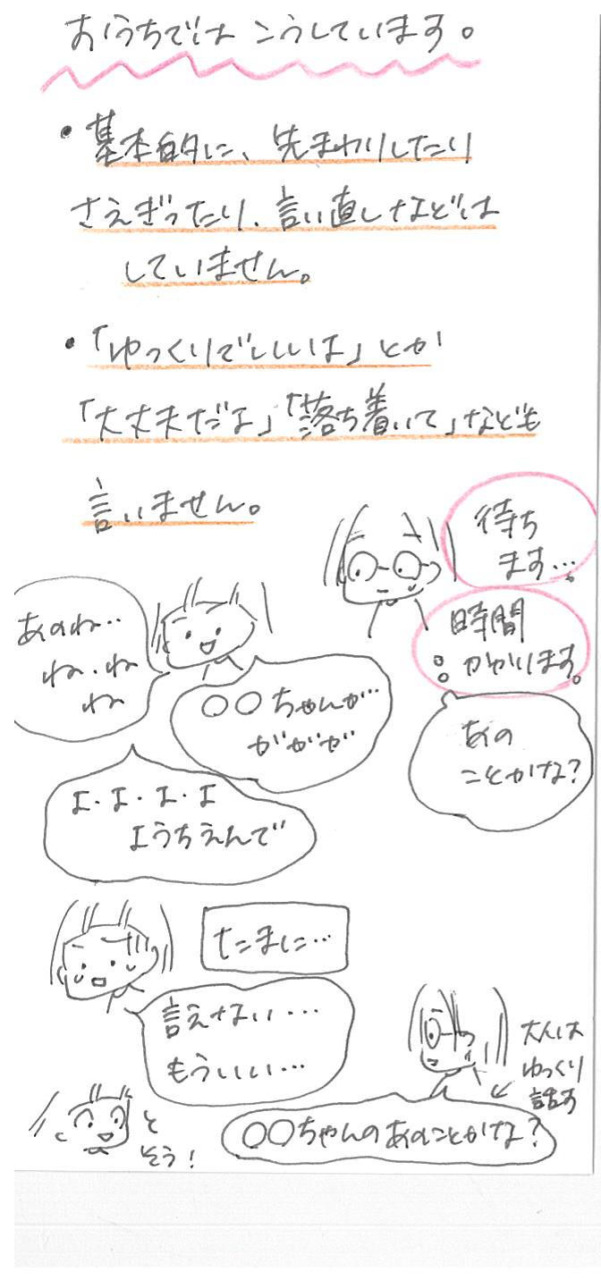 おうちでは こうしています。
・基本的に、先まわりしたり
さえぎったり、言い直しなどは
していません。
・「ゆっくりでいいよ」とか
「大丈夫だよ」「落ち着いて」なども
言いません。
待ち
ます…。
時間
かかります。
あのね…
ね・ね
ね
○○ちゃんが…
ががが
あの
ことかな?
よ・よ・よ・よ
ようちえんで
たまに…
言えない…
もういい…
大人は
ゆっくり
話す
○○ちゃんのあのことかな?
と
そう!